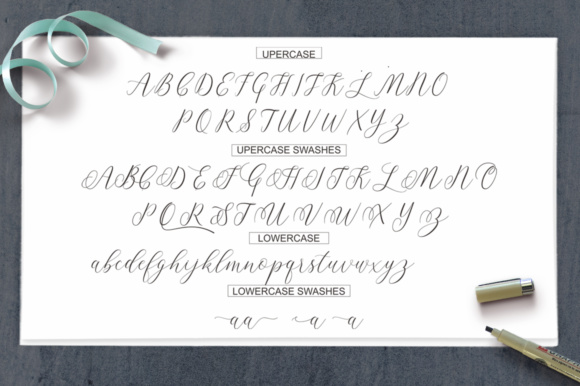 UPERCASE
A B C D E F G H I J K L M N O
P Q R S T U V W X Y Z
UPERCASE SWASHES
A B C D E F G H I J K L M N O
P Q R S T U V W X Y Z
LOWERCASE
abcdefghijklmnopqrstuvwxyz
LOWERCASE SWASHES
aa a a